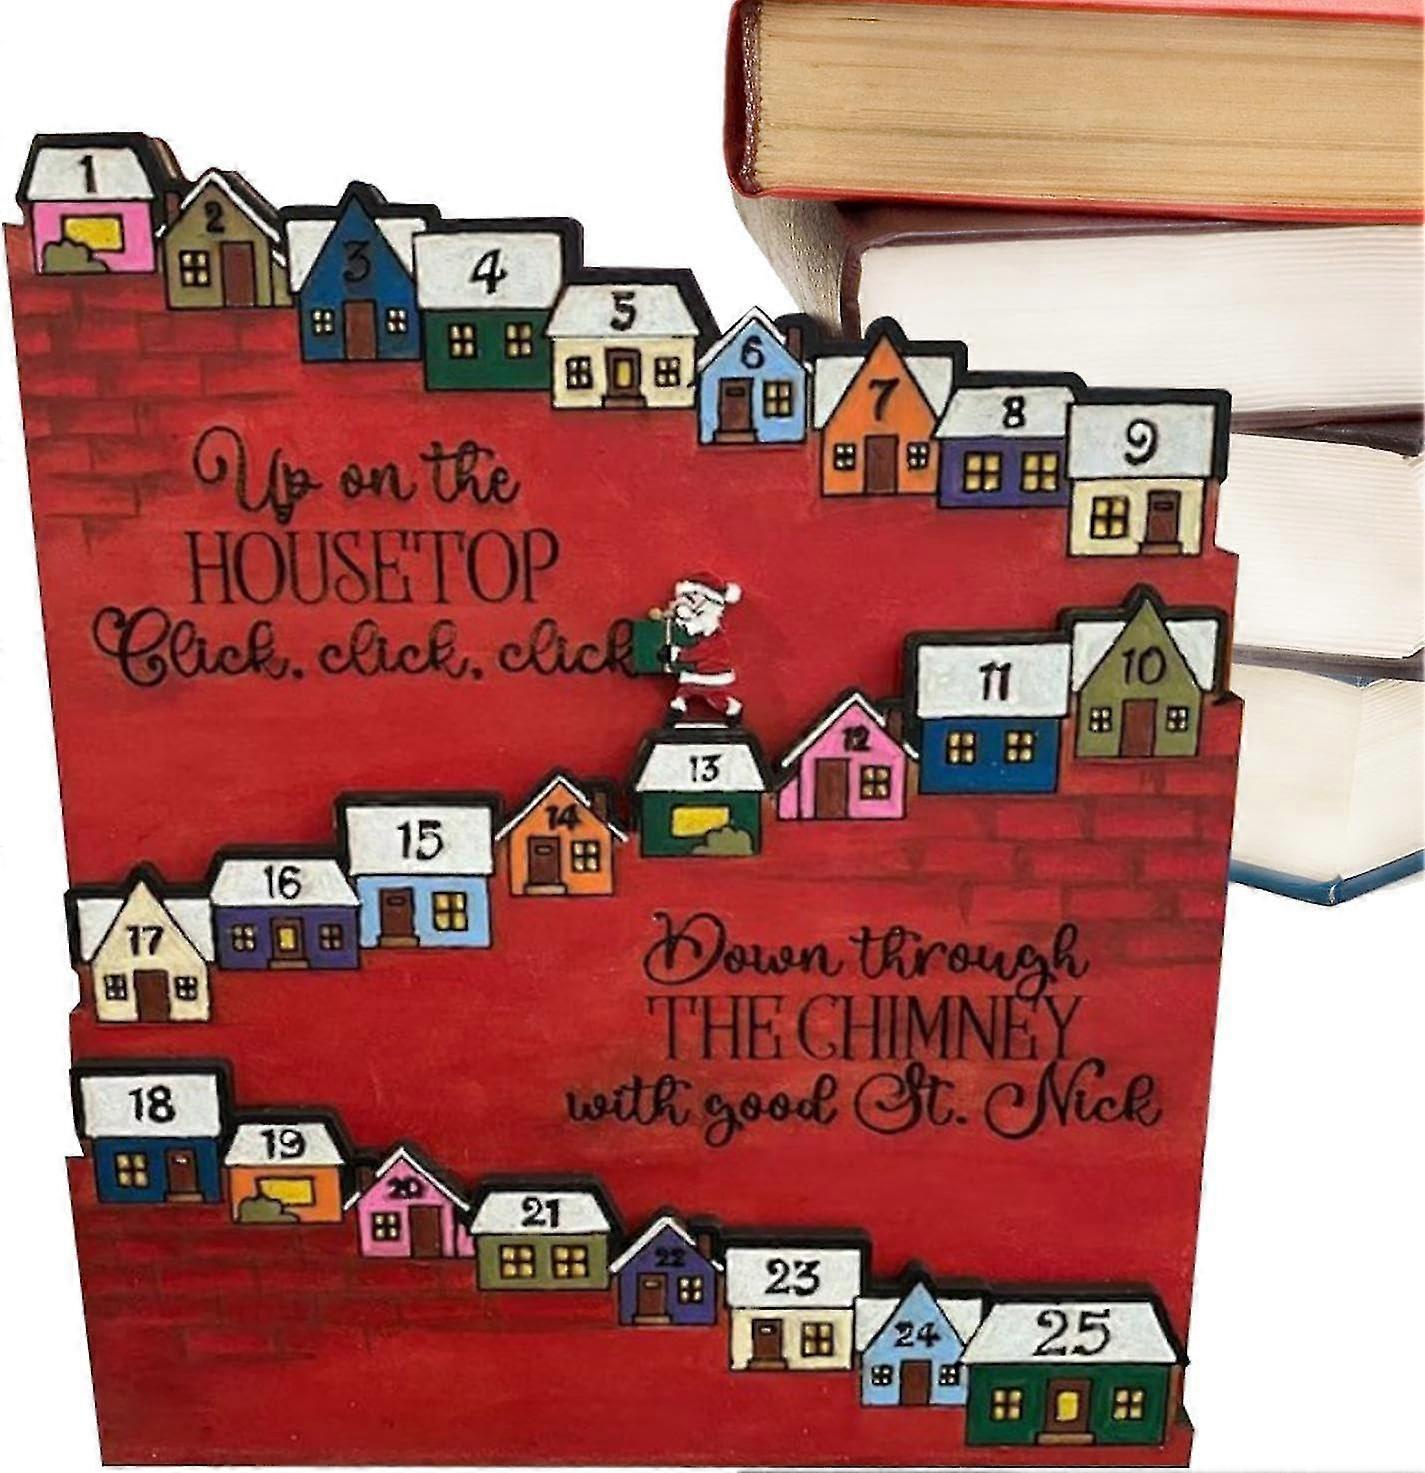 1
2
3
4
5
6
7
8
9
Up on the
HOUSETOP
Click, click, click
10
11
12
13
14
15
16
17
Down through
THE CHIMNEY
with good St. Nick
18
19
20
21
22
23
24
25